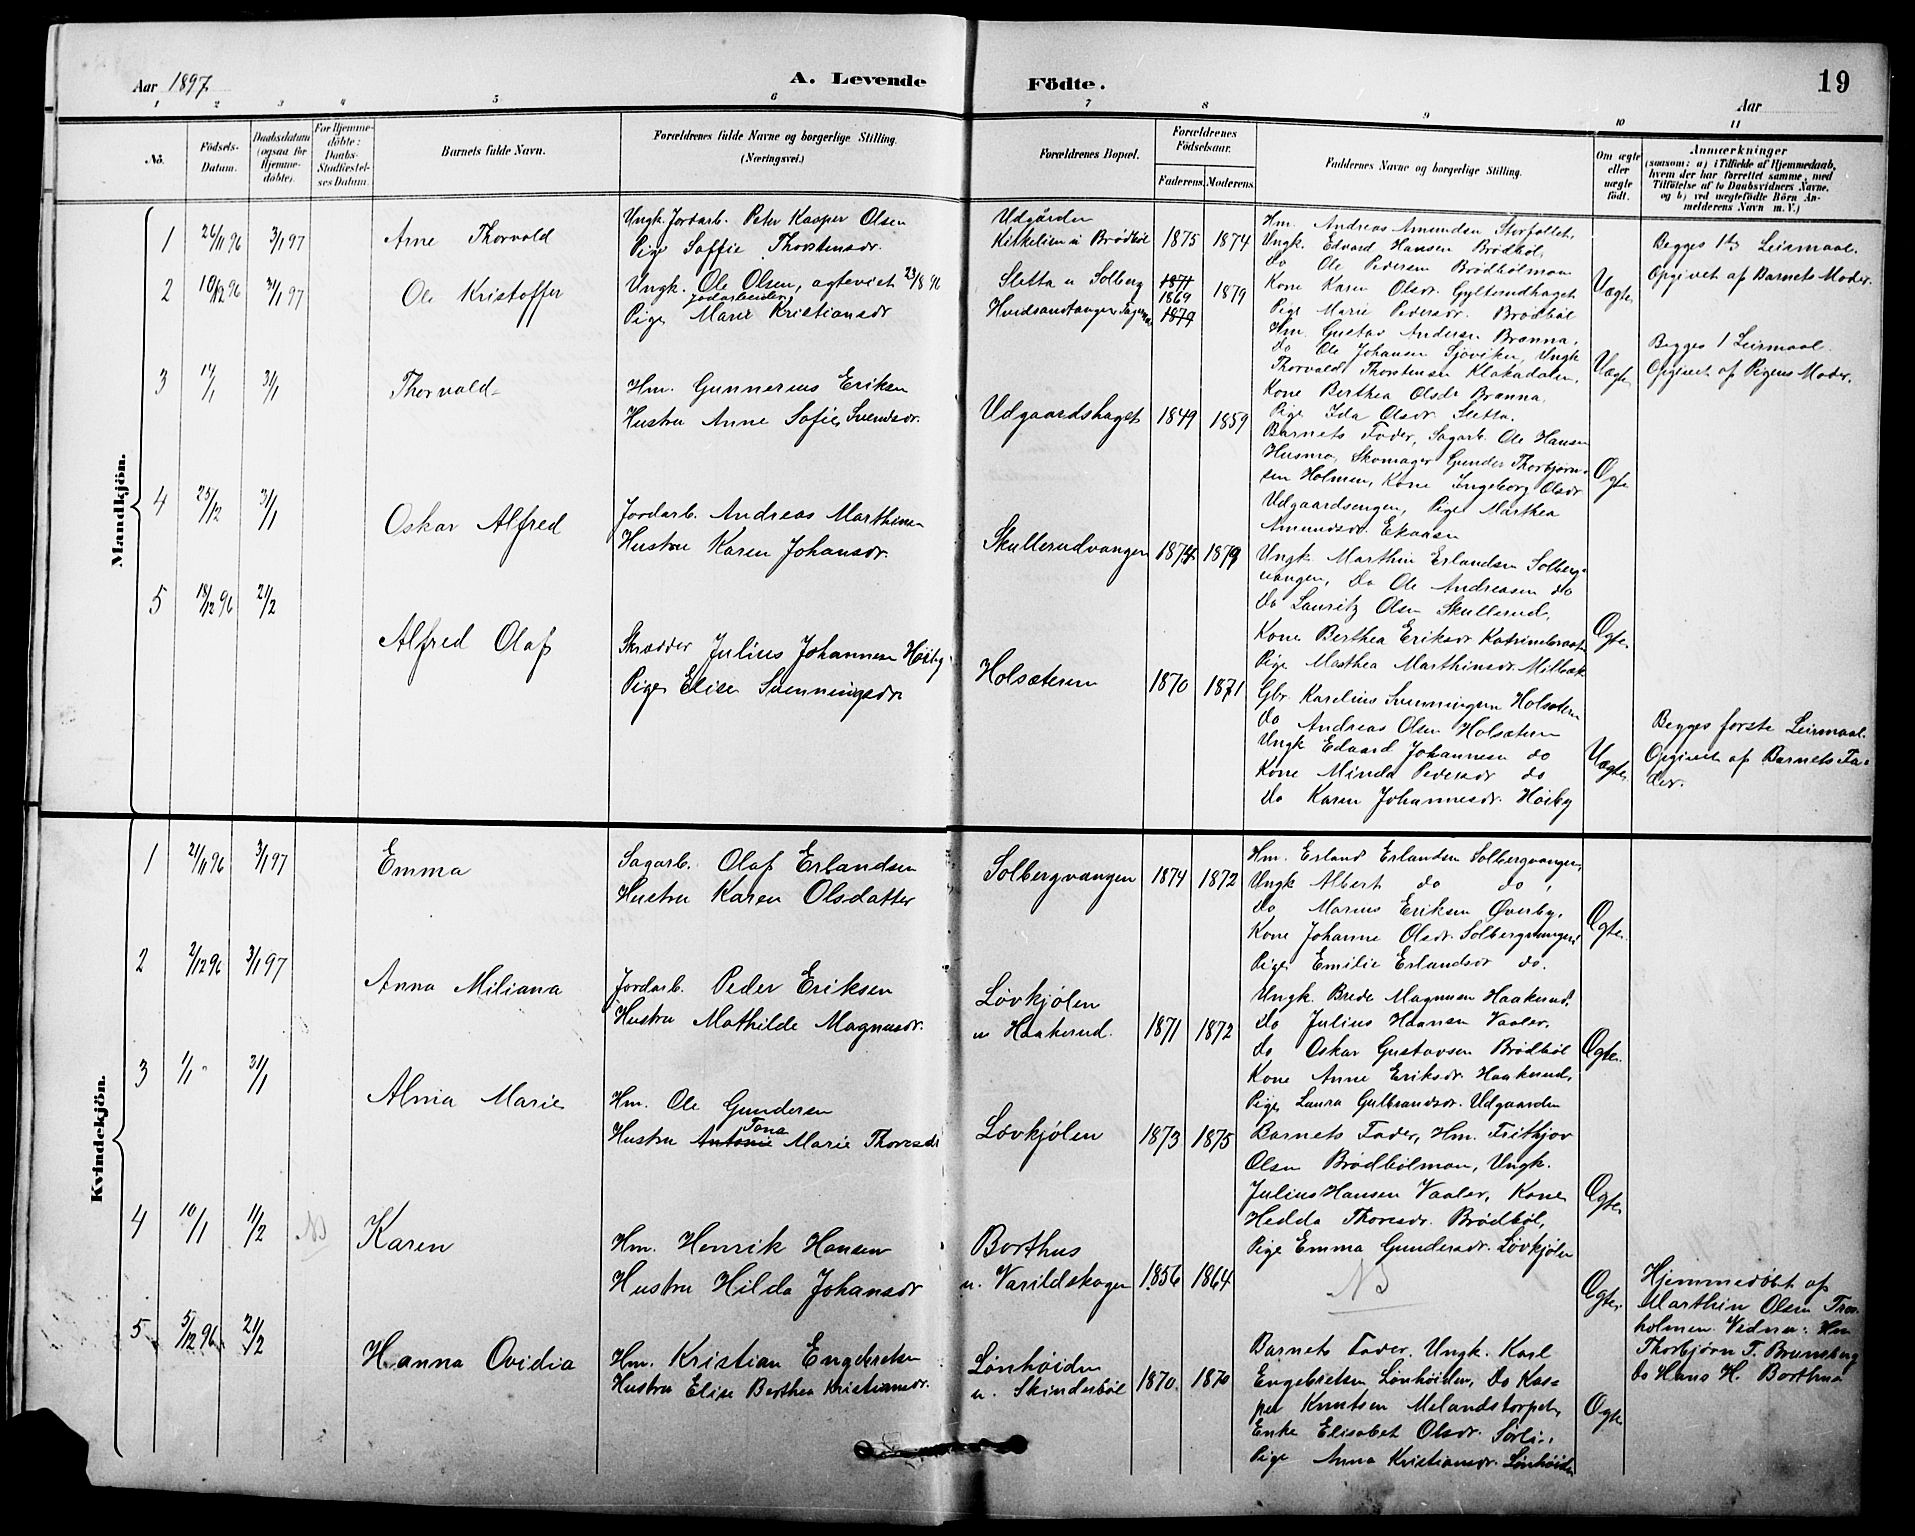 Aar 1897. A. Levende Födte. Aar 19
1 2 3 4 5 6 7 8 9 10 11
No.
Födsels-Datum.
Daabsdatum (ogsaa for Hjemme-döbte).
For Hjemme-döbte: Daabs-Stadfæstel-ses Datum.
Barnets fulde Navn.
Forældrenes fulde Navne og borgerlige Stilling. (Næringsvei.)
Forældrenes Bopæl.
Forældrenes Födselsaar.
Faderens. Moderens.
Faddernes Navne og borgerlige Stilling.
Om ægte eller uægte födt.
Anmærkninger
(saasom: a) i Tilfælde af Hjemmedaab,
hvem der har forrettet samme, med
Tilföielse af to Daabsvidners Navne.
og b) ved uægtefödte Börn An-
melderens Navn m. V.)
Mandkjön.
1 26/11 96 3/1 97 Arne Thorvald
Ungk. Jordarb. Peter Kasper Olsen
Pige Soffie Thorstensdr.
Udgården
Kikkelien u Brödböl 1875 1874
Hm. Andreas Amundsen Storfallet,
Ungk. Edvard Hansen Brödböl,
do Ole Pedersen Brödbölmoen
Kone Karen Olsdr. Gylterudhaget
Pige Marie Pedersdr. Brödböl
Uægte
Begges 1te Leiermaal.
Opgivet af Barnets Moder.
2 10/12 96 31/1 97 Ole Kristoffer
Ungk. Ole Olsen, agteviet 23/8 96
jordarbeider
Pige Marie Kristiansdr
Sletta u Solberg
Hvidsandtangen
1871 1869 1879 1879
Hm. Gustav Andersen Brænna,
do Ole Johansen Sjöviken, Ungk
Thorvald Thorstensen Klakadalen,
Kone Berthea Olsdr Brænna,
Pige Ida Olsdr. Sletta.
Uægte
Begges 1 Leiermaal.
Opgivet af Pigens Moder.
3 14/1 31/1 Thorvald
Hm. Gunnerius Eriksen
Hustru Anne Sofie Svendsdr.
Udgaardshaget 1849 1859
Barnets Fader, Sagarb. Ole Hansen
Husmo, Skomager Gunder Thorbjörn-
sen Holmen, Kone Ingeborg Olsdr
Udgaardsengen, Pige Marthea
Amundsdr. Ekaasen
Ægte
4 25/12 31/1 Oskar Alfred
Jordarb. Andreas Marthinsen
Hustru Karen Johansdr.
Skullerudvangen 1874 1879
Ungk. Marthin Erlandsen Solberg-
vangen, do Ole Andreasen do
do Lauritz Olsen Skullerud,
Kone Berthea Eriksdr
Pige Marthea Marthinsdr.
Ægte.
5 18/12 96 21/2 Alfred Olaf
Skrædder Julius Johannesen Høiby
Pige Elise Svenningsdr.
Holsæteren 1870 1871
Gbr. Karelius Svenningsen Holsæteren
do Andreas Olsen Holsæteren
Ungk Edvard Johannesen do
Kone Minda Pedersdr do
do Karen Johannesdr. Høiby
Uægte.
Begges første Leiermaal.
Opgivet af Barnets Fa-
der.
Kvindekjön.
1 21/11 96 3/1 97 Emma
Sagarb. Olaf Erlandsen
Hustru Karen Olsdatter
Solbergvangen 1874 1872
Hm. Erland Erlandsen Solbergvangen,
Ungk Albert do do,
do Marius Eriksen Øverby,
Kone Johanne Olsdr. Solbergvangen,
Pige Emilie Erlandsdr do.
Ægte.
2 2/12 96 3/1 97 Anna Miliana
Jordarb. Peder Eriksen
Hustru Mathilde Magnusdr.
Løvkjølen
u Haakerud. 1871 1872
Ungk. Brede Magnusen Haakerud,
do Julius Hansen Vaaler,
do Oskar Gustavsen Brødbøl
Kone Anne Eriksdr. Haakerud,
Pige Laura Gulbrandsdr. Udgaarden
Ægte.
3 1/1 31/1 Alma Marie
Hm. Ole Gundersen
Tona
Hustru Antonie Marie Thoresdr
Løvkjølen 1873 1875
Barnets Fader, Hm. Frithjov
Olsen Brødbølmoen, Ungk.
Julius Hansen Vaaler, Kone
Hedda Thoresdr. Brødbøl,
Pige Emma Gundersdr. Løvkjølen
Ægte.
4 10/1 11/2 NB Karen
Hm. Henrik Hansen
Hustru Hilda Johansdr
Borthus
u. Varildskogen 1856 1864
NB
Ægte.
Hjemmedøbt af
Marthin Olsen
holmen. Vidner: Hm
Thorbjørn T. Brunsberg
do Hans H. Borthus
5 5/12 96 21/2 Hanna Ovidia
Hm. Kristian Engebretsen
Hustru Elise Berthea Kristiansdr.
Lønhøiden
u. Skinderbøl 1870. 1870
Barnets Fader, Ungk. Karl
Engebretsen Lønhøiden, do Kas-
per Knutsen Melandstorpet,
Enke Elisabet Olsdr. Sørli,
Pige Anna Kristiansdr. Lønhøiden
Ægte